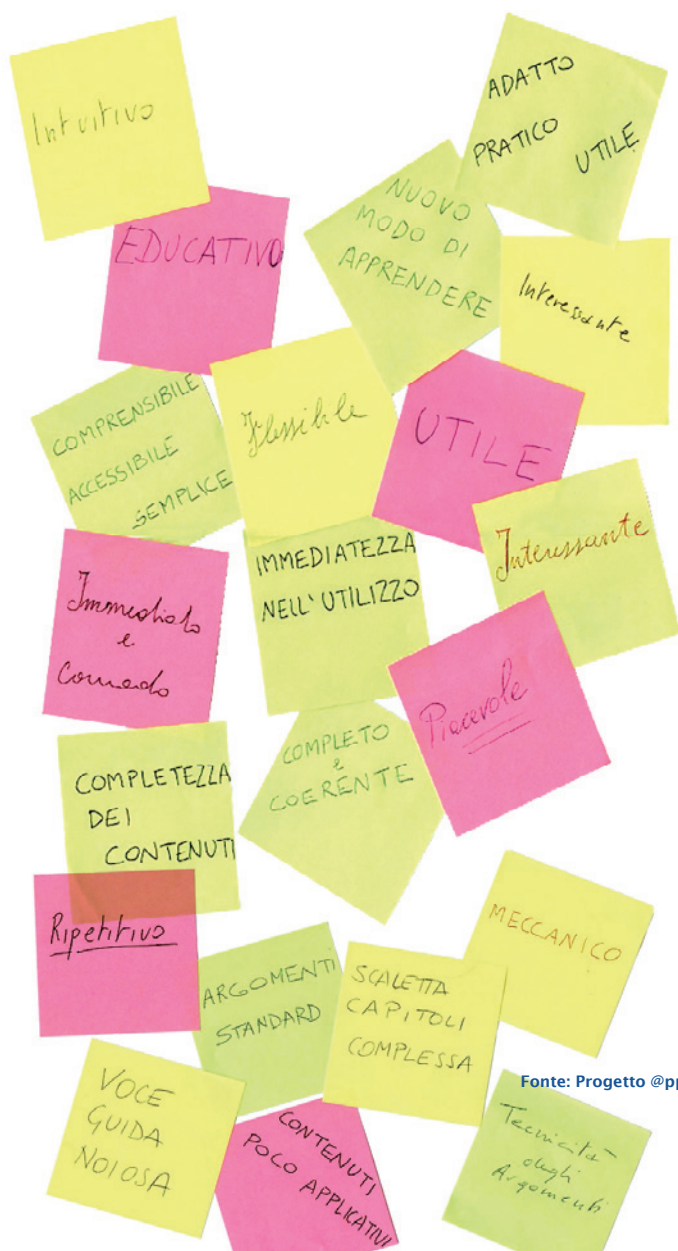 Intuitivo
ADATTO
PRATICO UTILE
EDUCATIVO
NUOVO
MODO DI
APPRENDERE
Interessante
COMPRENSIBILE
ACCESSIBILE
SEMPLICE
Flessibile
UTILE
Immediato
e
Comodo
IMMEDIATEZZA
NELL'UTILIZZO
Interessante
COMPLETEZZA
DEI
CONTENUTI
COMPLETO
e
COERENTE
Piacevole
Ripetitivo
ARGOMENTI
STANDARD
SCALETTA
CAPITOLI
COMPLESSA
MECCANICO
VOCE
GUIDA
NOIOSA
CONTENUTI
POCO APPLICATIVI
Fonte: Progetto @pp
Tecnicità
degli
Argomenti